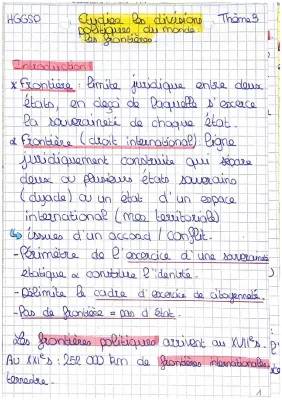 HGGSP Etudier les divisions Thème 3
politiques du monde
les frontières
Introduction:
Frontière: limite juridique entre deux
états, en deçà de laquelle s'exerce
la souveraineté de chaque état.
Frontière (droit international): ligne
juridiquement construite qui sépare
deux ou plusieurs états souverains
(dyade) ou un état d'un espace
international (mer territoriale)
↳ issues d'un accord / conflit.
- Périmètre de l'exercice d'une souveraineté
étatique & constitue l'identité.
- Délimite le cadre d'exercice de citoyenneté.
- Pas de frontière = pas d'état.
Les frontières politiques arrivent au XVIIes.
Au XXIes: 252 000 km de frontières internationales
terrestre.
1